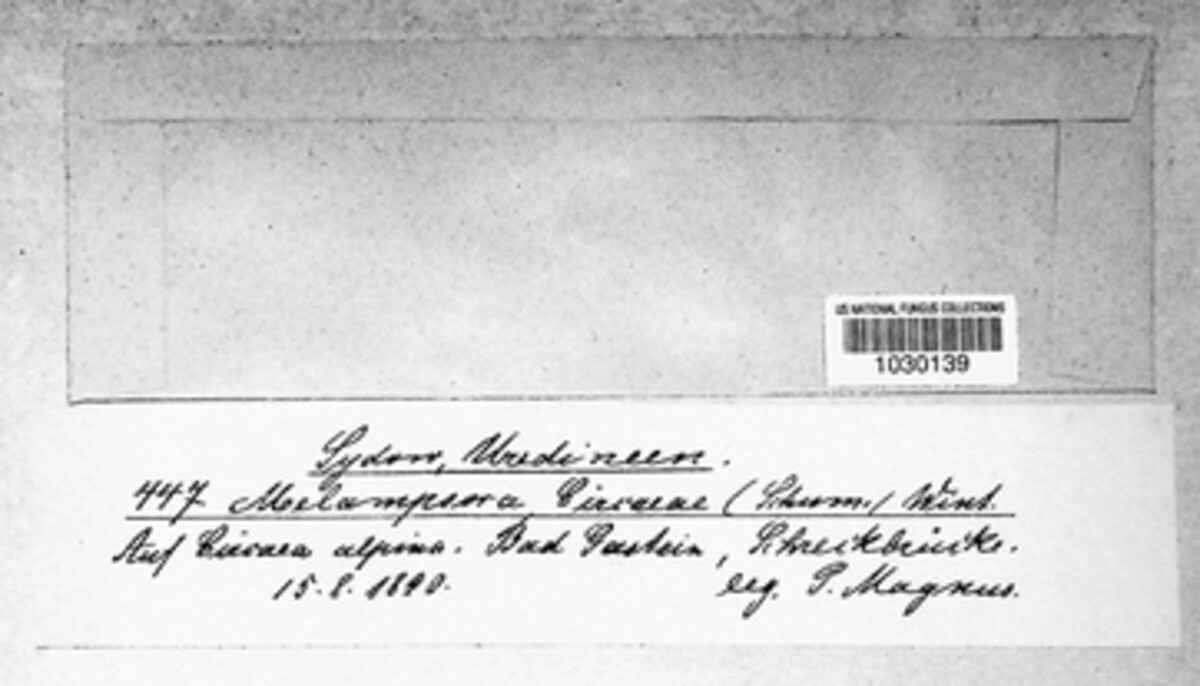 US NATIONAL FUNGUS COLLECTIONS
1030139
Sydow, Uredineen.
447 Melampsora Circaeae (Schum.) Wint.
Auf Circaea alpina. Bad Gastein, Schreckbrücke.
15. 8. 1890. leg. P. Magnus.